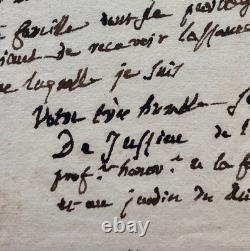 famille dont je partag
de recevoir l'assura
laquelle je suis
Votre très humble
De Jussieu de l
prof.r honor.re a la f
et au jardin du